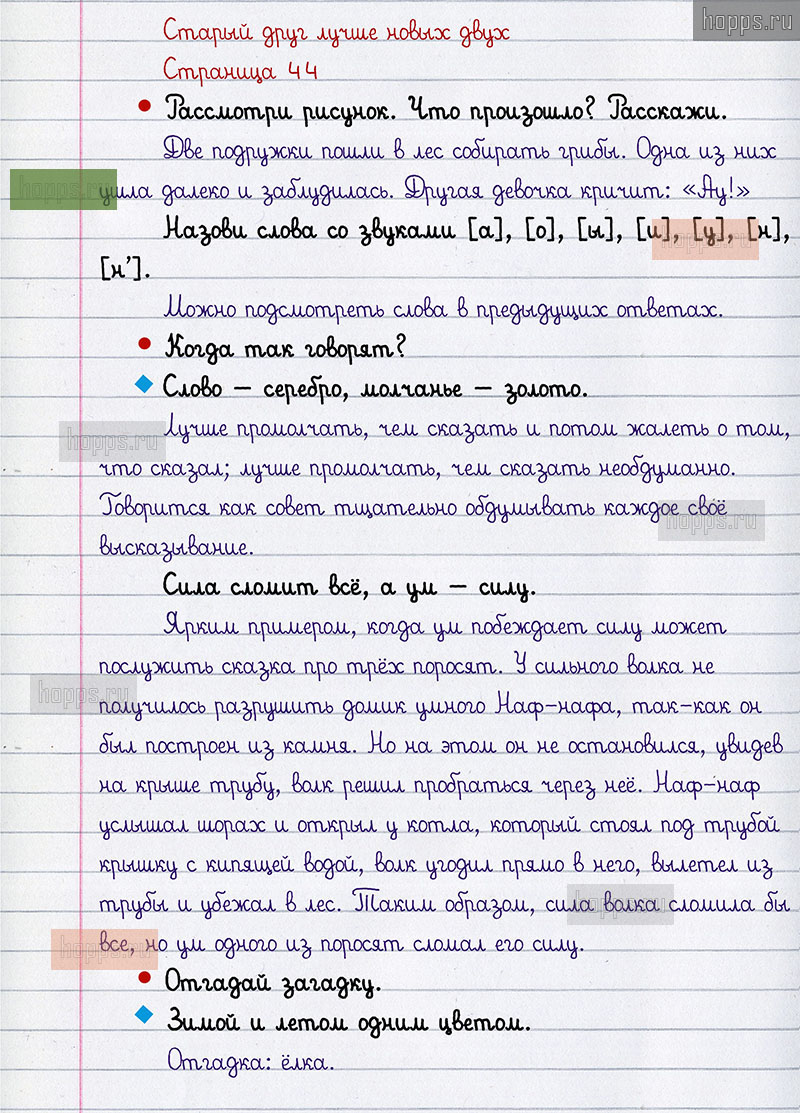 hopps.ru
Старый друг лучше новых двух
Страница 44
Рассмотри рисунок. Что произошло? Расскажи.
Две подружки пошли в лес собирать грибы. Одна из них
hopps.ru
ушла далеко и заблудилась. Другая девочка кричит: «Ау!»
Назови слова со звуками [а], [о], [ы], [и], [у], [н],
hopps.ru
[н’].
Можно подсмотреть слова в предыдущих ответах.
Когда так говорят?
Слово – серебро, молчанье – золото.
Лучше промолчать, чем сказать и потом жалеть о том,
hopps.ru
что сказал; лучше промолчать, чем сказать необдуманно.
Говорится как совет тщательно обдумывать каждое своё
hopps.ru
высказывание.
Сила сломит всё, а ум – силу.
Ярким примером, когда ум побеждает силу может
послужить сказка про трёх поросят. У сильного волка не
hopps.ru
получилось разрушить домик умного Наф-нафа, так-как он
был построен из камня. Но на этом он не остановился, увидев
на крыше трубу, волк решил пробраться через неё. Наф-наф
услышал шорах и открыл у котла, который стоял под трубой
крышку с кипящей водой, волк угодил прямо в него, вылетел из
трубы и убежал в лес. Таким образом, сила волка сломила бы
hopps.ru
все, но ум одного из поросят сломал его силу.
hopps.ru
Отгадай загадку.
Зимой и летом одним цветом.
Отгадка: ёлка.